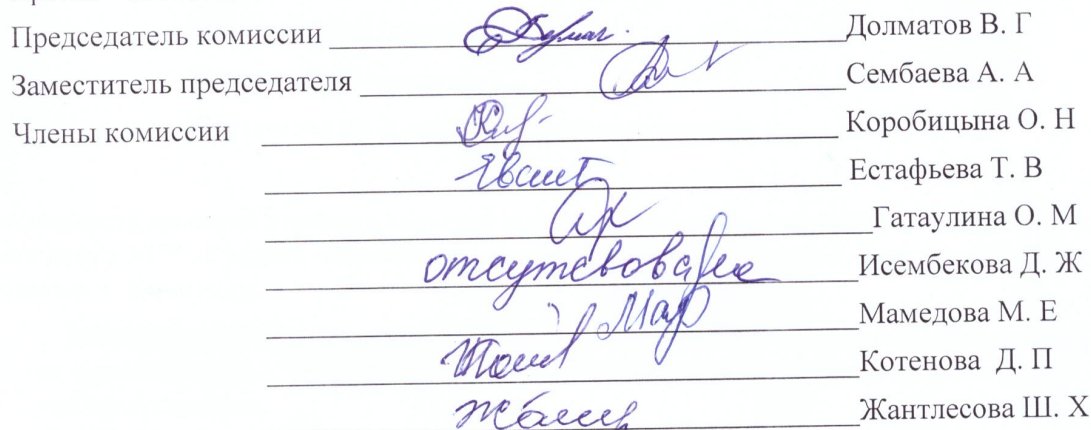 Председатель комиссии Долматов В. Г
Заместитель председателя Сембаева А. А
Члены комиссии Коробицына О. Н
Естафьева Т. В
Гатаулина О. М
отсутсвовала Исембекова Д. Ж
Мамедова М. Е
Котенова Д. П
Жантлесова Ш. Х